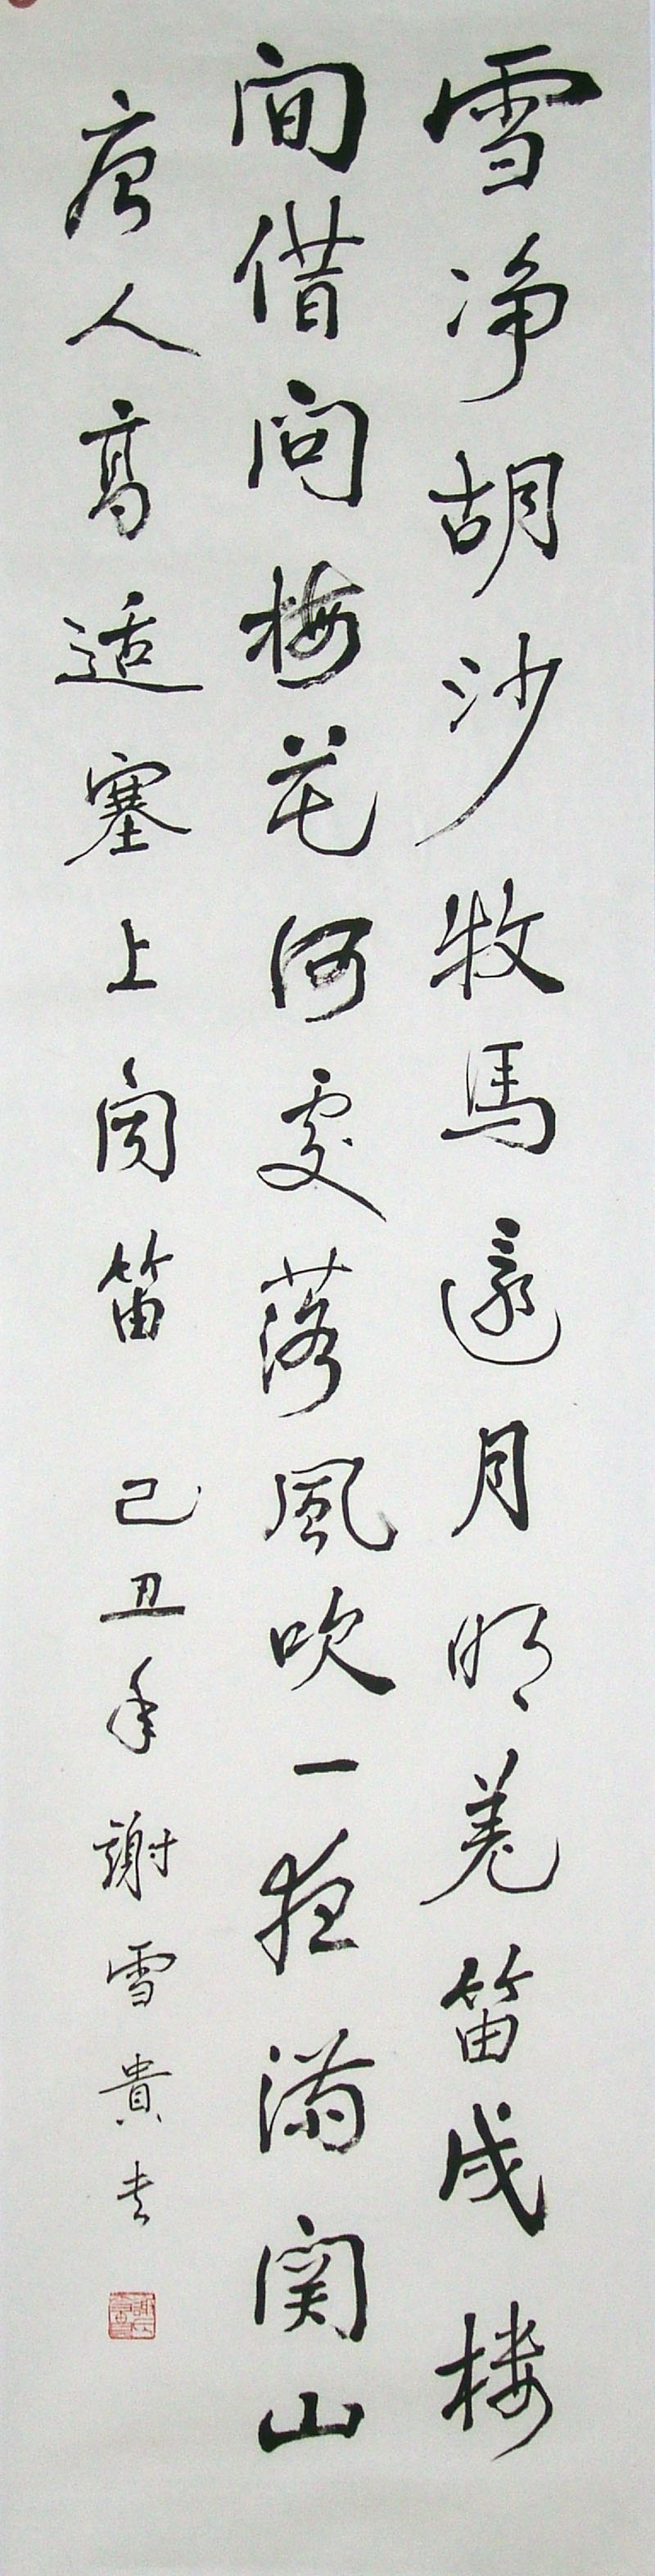 雪净胡沙牧馬還月明羌笛戍楼
间借问梅花何處落風吹一夜满関山
唐人高适塞上闻笛 己丑年謝雪貴书